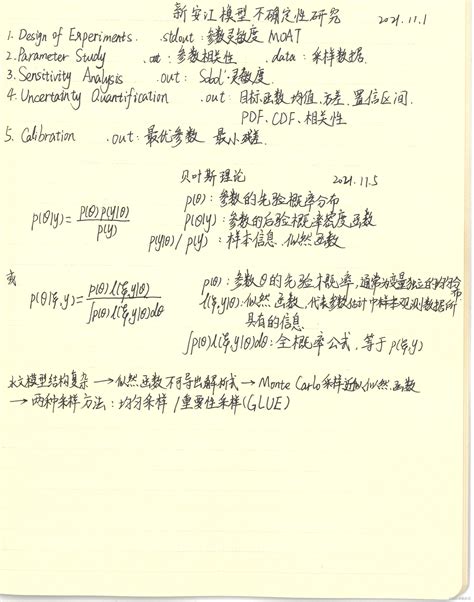 新安江模型不确定性研究 2021.11.1
1. Design of Experiments .stdout: 参数灵敏度 MOAT
2. Parameter Study .out: 参数相关性 .data: 采样数据
3. Sensitivity Analysis .out: Sobol 灵敏度
4. Uncertainty Quantification .out: 目标函数均值、方差、置信区间
PDF、CDF、相关性
5. Calibration .out: 最优参数 最小残差
贝叶斯理论 2021.11.5
p(θ|y) = p(θ)p(y|θ) / p(y)
p(θ): 参数的先验概率分布
p(θ|y): 参数的后验概率密度函数
p(y|θ)/p(y): 样本信息、似然函数
或
p(θ|ξ,y) = p(θ)l(ξ,y|θ) / ∫p(θ)l(ξ,y|θ)dθ
p(θ): 参数θ的先验概率,通常为变量独立的均匀分布
l(ξ,y|θ): 似然函数,代表参数估计中样本观测数据所
具有的信息
∫p(θ)l(ξ,y|θ)dθ: 全概率公式,等于p(ξ,y)
水文模型结构复杂 → 似然函数不可导出解析式 → Monte Carlo 采样近似似然函数
→ 两种采样方法: 均匀采样 / 重要性采样(GLUE)